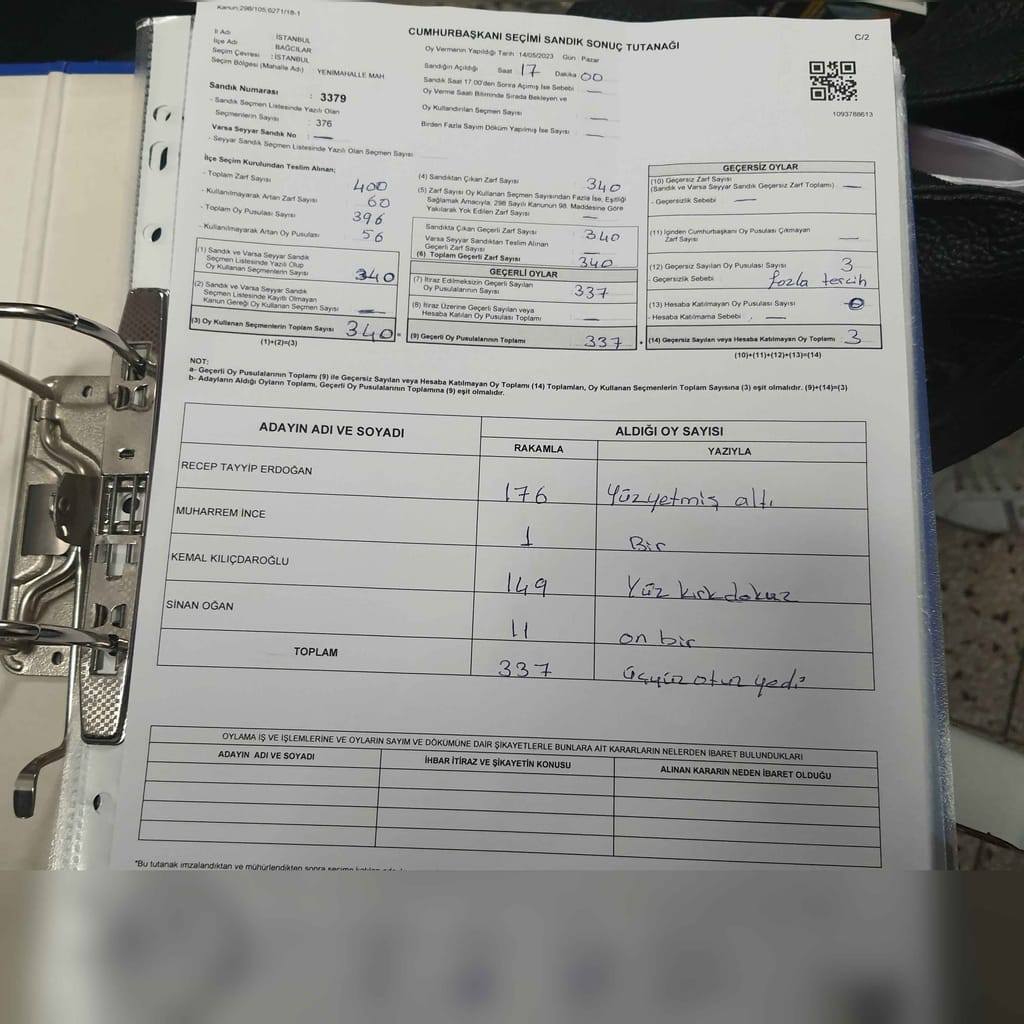 Kanun:298/105,6271/18-1
CUMHURBAŞKANI SEÇİMİ SANDIK SONUÇ TUTANAĞI
C/2
İl Adı : İSTANBUL
İlçe Adı : BAĞCILAR
Seçim Çevresi : İSTANBUL
Seçim Bölgesi (Mahalle Adı) YENİMAHALLE MAH
Sandık Numarası : 3379
- Sandık Seçmen Listesinde Yazılı Olan
Seçmenlerin Sayısı : 376
Varsa Seyyar Sandık No : —
- Seyyar Sandık Seçmen Listesinde Yazılı Olan Seçmen Sayısı
Oy Vermenin Yapıldığı Tarih :14/05/2023 Gün Pazar
Sandığın Açıldığı Saat 17 Dakika 00
Sandık Saat 17:00'den Sonra Açılmış İse Sebebi : —
Oy Verme Saati Bitiminde Sırada Bekleyen ve
Oy Kullandırılan Seçmen Sayısı : —
Birden Fazla Sayım Döküm Yapılmış İse Sayısı : —
1093788613
İlçe Seçim Kurulundan Teslim Alınan;
- Toplam Zarf Sayısı : 400
- Kullanılmayarak Artan Zarf Sayısı : 60
- Toplam Oy Pusulası Sayısı : 396
- Kullanılmayarak Artan Oy Pusulası : 56
(1) Sandık ve Varsa Seyyar Sandık
Seçmen Listesinde Yazılı Olup
Oy Kullanan Seçmenlerin Sayısı : 340
(2) Sandık ve Varsa Seyyar Sandık
Seçmen Listesinde Kayıtlı Olmayan
Kanun Gereği Oy Kullanan Seçmen Sayısı : —
(3) Oy Kullanan Seçmenlerin Toplam Sayısı : 340 =
(1)+(2)=(3)
(4) Sandıktan Çıkan Zarf Sayısı : 340
(5) Zarf Sayısı Oy Kullanan Seçmen Sayısından Fazla İse, Eşitliği
Sağlamak Amacıyla, 298 Sayılı Kanunun 98. Maddesine Göre
Yakılarak Yok Edilen Zarf Sayısı : —
Sandıkta Çıkan Geçerli Zarf Sayısı : 340
Varsa Seyyar Sandıktan Teslim Alınan
Geçerli Zarf Sayısı : —
(6) Toplam Geçerli Zarf Sayısı : 340
GEÇERLİ OYLAR
(7) İtiraz Edilmeksizin Geçerli Sayılan
Oy Pusulalarının Sayısı : 337
(8) İtiraz Üzerine Geçerli Sayılan veya
Hesaba Katılan Oy Pusulası Toplamı : —
(9) Geçerli Oy Pusulalarının Toplamı : 337 +
GEÇERSİZ OYLAR
(10) Geçersiz Zarf Sayısı
(Sandık ve Varsa Seyyar Sandık Geçersiz Zarf Toplamı) : —
- Geçersizlik Sebebi : —
(11) İçinden Cumhurbaşkanı Oy Pusulası Çıkmayan
Zarf Sayısı : —
(12) Geçersiz Sayılan Oy Pusulası Sayısı : 3
- Geçersizlik Sebebi : fazla tercih
(13) Hesaba Katılmayan Oy Pusulası Sayısı :
- Hesaba Katılmama Sebebi : —
(14) Geçersiz Sayılan veya Hesaba Katılmayan Oy Toplamı : 3
(10)+(11)+(12)+(13)=(14)
NOT:
a- Geçerli Oy Pusulalarının Toplamı (9) ile Geçersiz Sayılan veya Hesaba Katılmayan Oy Toplamı (14) Toplamları, Oy Kullanan Seçmenlerin Toplam Sayısına (3) eşit olmalıdır. (9)+(14)=(3)
b- Adayların Aldığı Oyların Toplamı, Geçerli Oy Pusulalarının Toplamına (9) eşit olmalıdır.
ADAYIN ADI VE SOYADI ALDIĞI OY SAYISI
RAKAMLA YAZIYLA
RECEP TAYYİP ERDOĞAN 176 Yüzyetmiş altı
MUHARREM İNCE 1 Bir
KEMAL KILIÇDAROĞLU 149 Yüz kırkdokuz
SİNAN OĞAN 11 on bir
TOPLAM 337 üçyüz otuz yedi
OYLAMA İŞ VE İŞLEMLERİNE VE OYLARIN SAYIM VE DÖKÜMÜNE DAİR ŞİKAYETLERLE BUNLARA AİT KARARLARIN NELERDEN İBARET BULUNDUKLARI
ADAYIN ADI VE SOYADI İHBAR İTİRAZ VE ŞİKAYETİN KONUSU ALINAN KARARIN NEDEN İBARET OLDUĞU
*Bu tutanak imzalandıktan ve mühürlendikten sonra